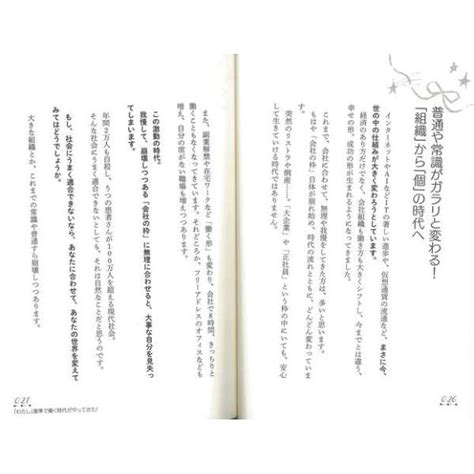 普通や常識がガラリと変わる！
「組織」から「個」の時代へ
インターネットやAIなどITの著しい進歩や、仮想通貨の流通など、まさに今、
世の中の仕組みが大きく変わろうとしています。
経済のあり方だけでなく、会社組織も働き方も大きくシフトし、今までとは違う、
幸せの形、成功の形が生まれるようになってきました。
これまで、会社に合わせて、無理や我慢をしてきた方は、多いと思います。
もはや「会社の枠」自体が崩れ始め、時代の流れとともに、どんどん変わっていま
す。
突然のリストラや倒産……。「大企業」や「正社員」という枠の中にいても、安心
して生きていける時代ではなくなっています。
026
また、副業解禁や在宅ワークなど「働く形」も変わり、会社で8時間、きっちりと
働くこともなくなってきています。それどころか、フリーアドレスのオフィスなども
増え、自分の席がない職場も増えつつあります。
この激動の時代。
我慢して、崩壊しつつある「会社の枠」に無理に合わせると、大事な自分を見失っ
てしまいます。
年間2万人も自殺し、うつの患者さんが100万人を超える現代社会。
そんな社会にうまく適合できないとしても、それは自然なことだと思うのです。
もし、社会にうまく適合できないなら、あなたに合わせて、あなたの世界を変えて
みてはどうでしょうか。
大きな組織とか、これまでの常識や普通すら崩壊しつつあります。
027
「わたし」基準で働く時代がやってきた！